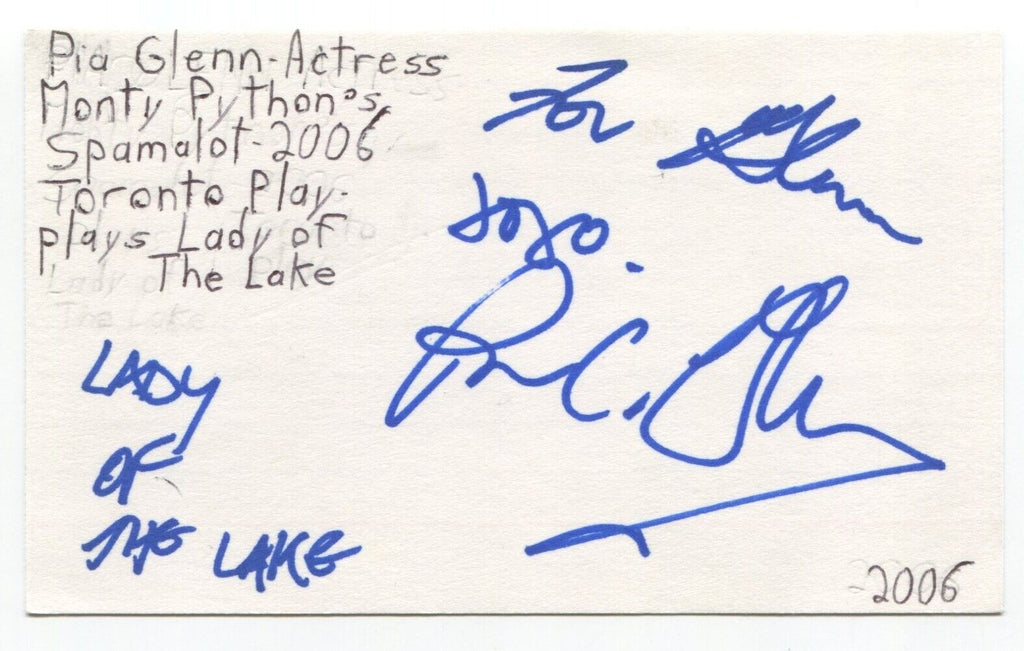 Pia Glenn-Actress
Monty Python's
Spamalot-2006
Toronto Play-
plays Lady of
The Lake
For Glenn
xoxo
LADY
OF
THE LAKE
-2006